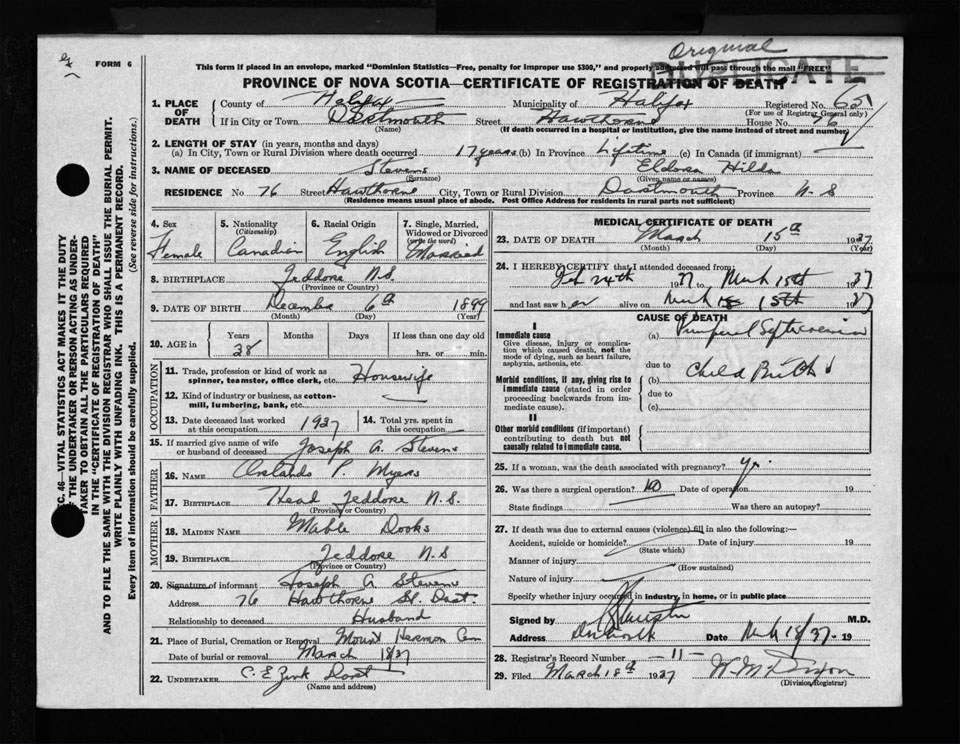 Original
DUPLICATE
FORM 6
This form if placed in an envelope, marked "Dominion Statistics—Free, penalty for improper use $300," and properly addressed will pass through the mail "FREE"
PROVINCE OF NOVA SCOTIA—CERTIFICATE OF REGISTRATION OF DEATH
C. 46—VITAL STATISTICS ACT MAKES IT THE DUTY
OF THE UNDERTAKER OR PERSON ACTING AS UNDER-
TAKER TO OBTAIN ALL THE PARTICULARS REQUIRED
IN THE "CERTIFICATE OF REGISTRATION OF DEATH"
AND TO FILE THE SAME WITH THE DIVISION REGISTRAR WHO SHALL ISSUE THE BURIAL PERMIT.
WRITE PLAINLY WITH UNFADING INK. THIS IS A PERMANENT RECORD.
Every item of information should be carefully supplied. (See reverse side for instructions.)
1. PLACE OF DEATH
County of Halifax Municipality of Halifax Registered No. 65
(For use of Registrar General only)
If in City or Town Dartmouth Street Hawthorne House No. 76
(Name) (If death occurred in a hospital or institution, give the name instead of street and number)
2. LENGTH OF STAY (in years, months and days)
(a) In City, Town or Rural Division where death occurred 17 years (b) In Province Lifetime (c) In Canada (if immigrant)
3. NAME OF DECEASED Stevens Eldora Hilda
(Surname) (Given name or names)
RESIDENCE No 76 Street Hawthorne City, Town or Rural Division Dartmouth Province N-S
(Residence means usual place of abode. Post Office Address for residents in rural parts not sufficient)
4. Sex Female
5. Nationality (Citizenship) Canadian
6. Racial Origin English
7. Single, Married, Widowed or Divorced (write the word) Married
8. BIRTHPLACE Jeddore N.S.
(Province or Country)
9. DATE OF BIRTH December 6th 1899
(Month) (Day) (Year)
10. AGE in Years Months Days If less than one day old
38 hrs. or min.
OCCUPATION
11. Trade, profession or kind of work as spinner, teamster, office clerk, etc. Housewife
12. Kind of industry or business, as cotton-mill, lumbering, bank, etc.
13. Date deceased last worked at this occupation 1937
14. Total yrs. spent in this occupation
15. If married give name of wife or husband of deceased Joseph A. Stevens
FATHER
16. NAME Orlando P. Myers
17. BIRTHPLACE Head Jeddore N.S.
(Province or Country)
MOTHER
18. MAIDEN NAME Mable Dooks
19. BIRTHPLACE Jeddore N-S
(Province or Country)
20. Signature of informant Joseph A. Stevens
Address 76 Hawthorne St. Dart
Relationship to deceased Husband
21. Place of Burial, Cremation or Removal Mount Hermon Cem
Date of burial or removal March 18/37
22. UNDERTAKER C. E. Zink Dart
(Name and address)
MEDICAL CERTIFICATE OF DEATH
23. DATE OF DEATH March 15th 1937
(Month) (Day) (Year)
24. I HEREBY CERTIFY that I attended deceased from
Feb 24th 1937 to March 15th 1937
and last saw her alive on March 15th 1937
CAUSE OF DEATH
I
Immediate cause
Give disease, injury or complication which caused death, not the mode of dying, such as heart failure, asphyxia, asthenia, etc.
(a) Puerperal Septicaemia
due to
Morbid conditions, if any, giving rise to immediate cause (stated in order proceeding backwards from immediate cause).
(b) Child Birth
due to
(c)
II
Other morbid conditions (if important) contributing to death but not causally related to immediate cause.
25. If a woman, was the death associated with pregnancy? Yes
26. Was there a surgical operation? No Date of operation 19
State findings Was there an autopsy?
27. If death was due to external causes (violence) fill in also the following:—
Accident, suicide or homicide? Date of injury 19
(State which)
Manner of injury
(How sustained)
Nature of injury
Specify whether injury occurred in industry, in home, or in public place
Signed by M.D.
Address Date March 18/37 19
28. Registrar's Record Number —11—
29. Filed March 18th 1937 W. M. Dixon
(Division Registrar)